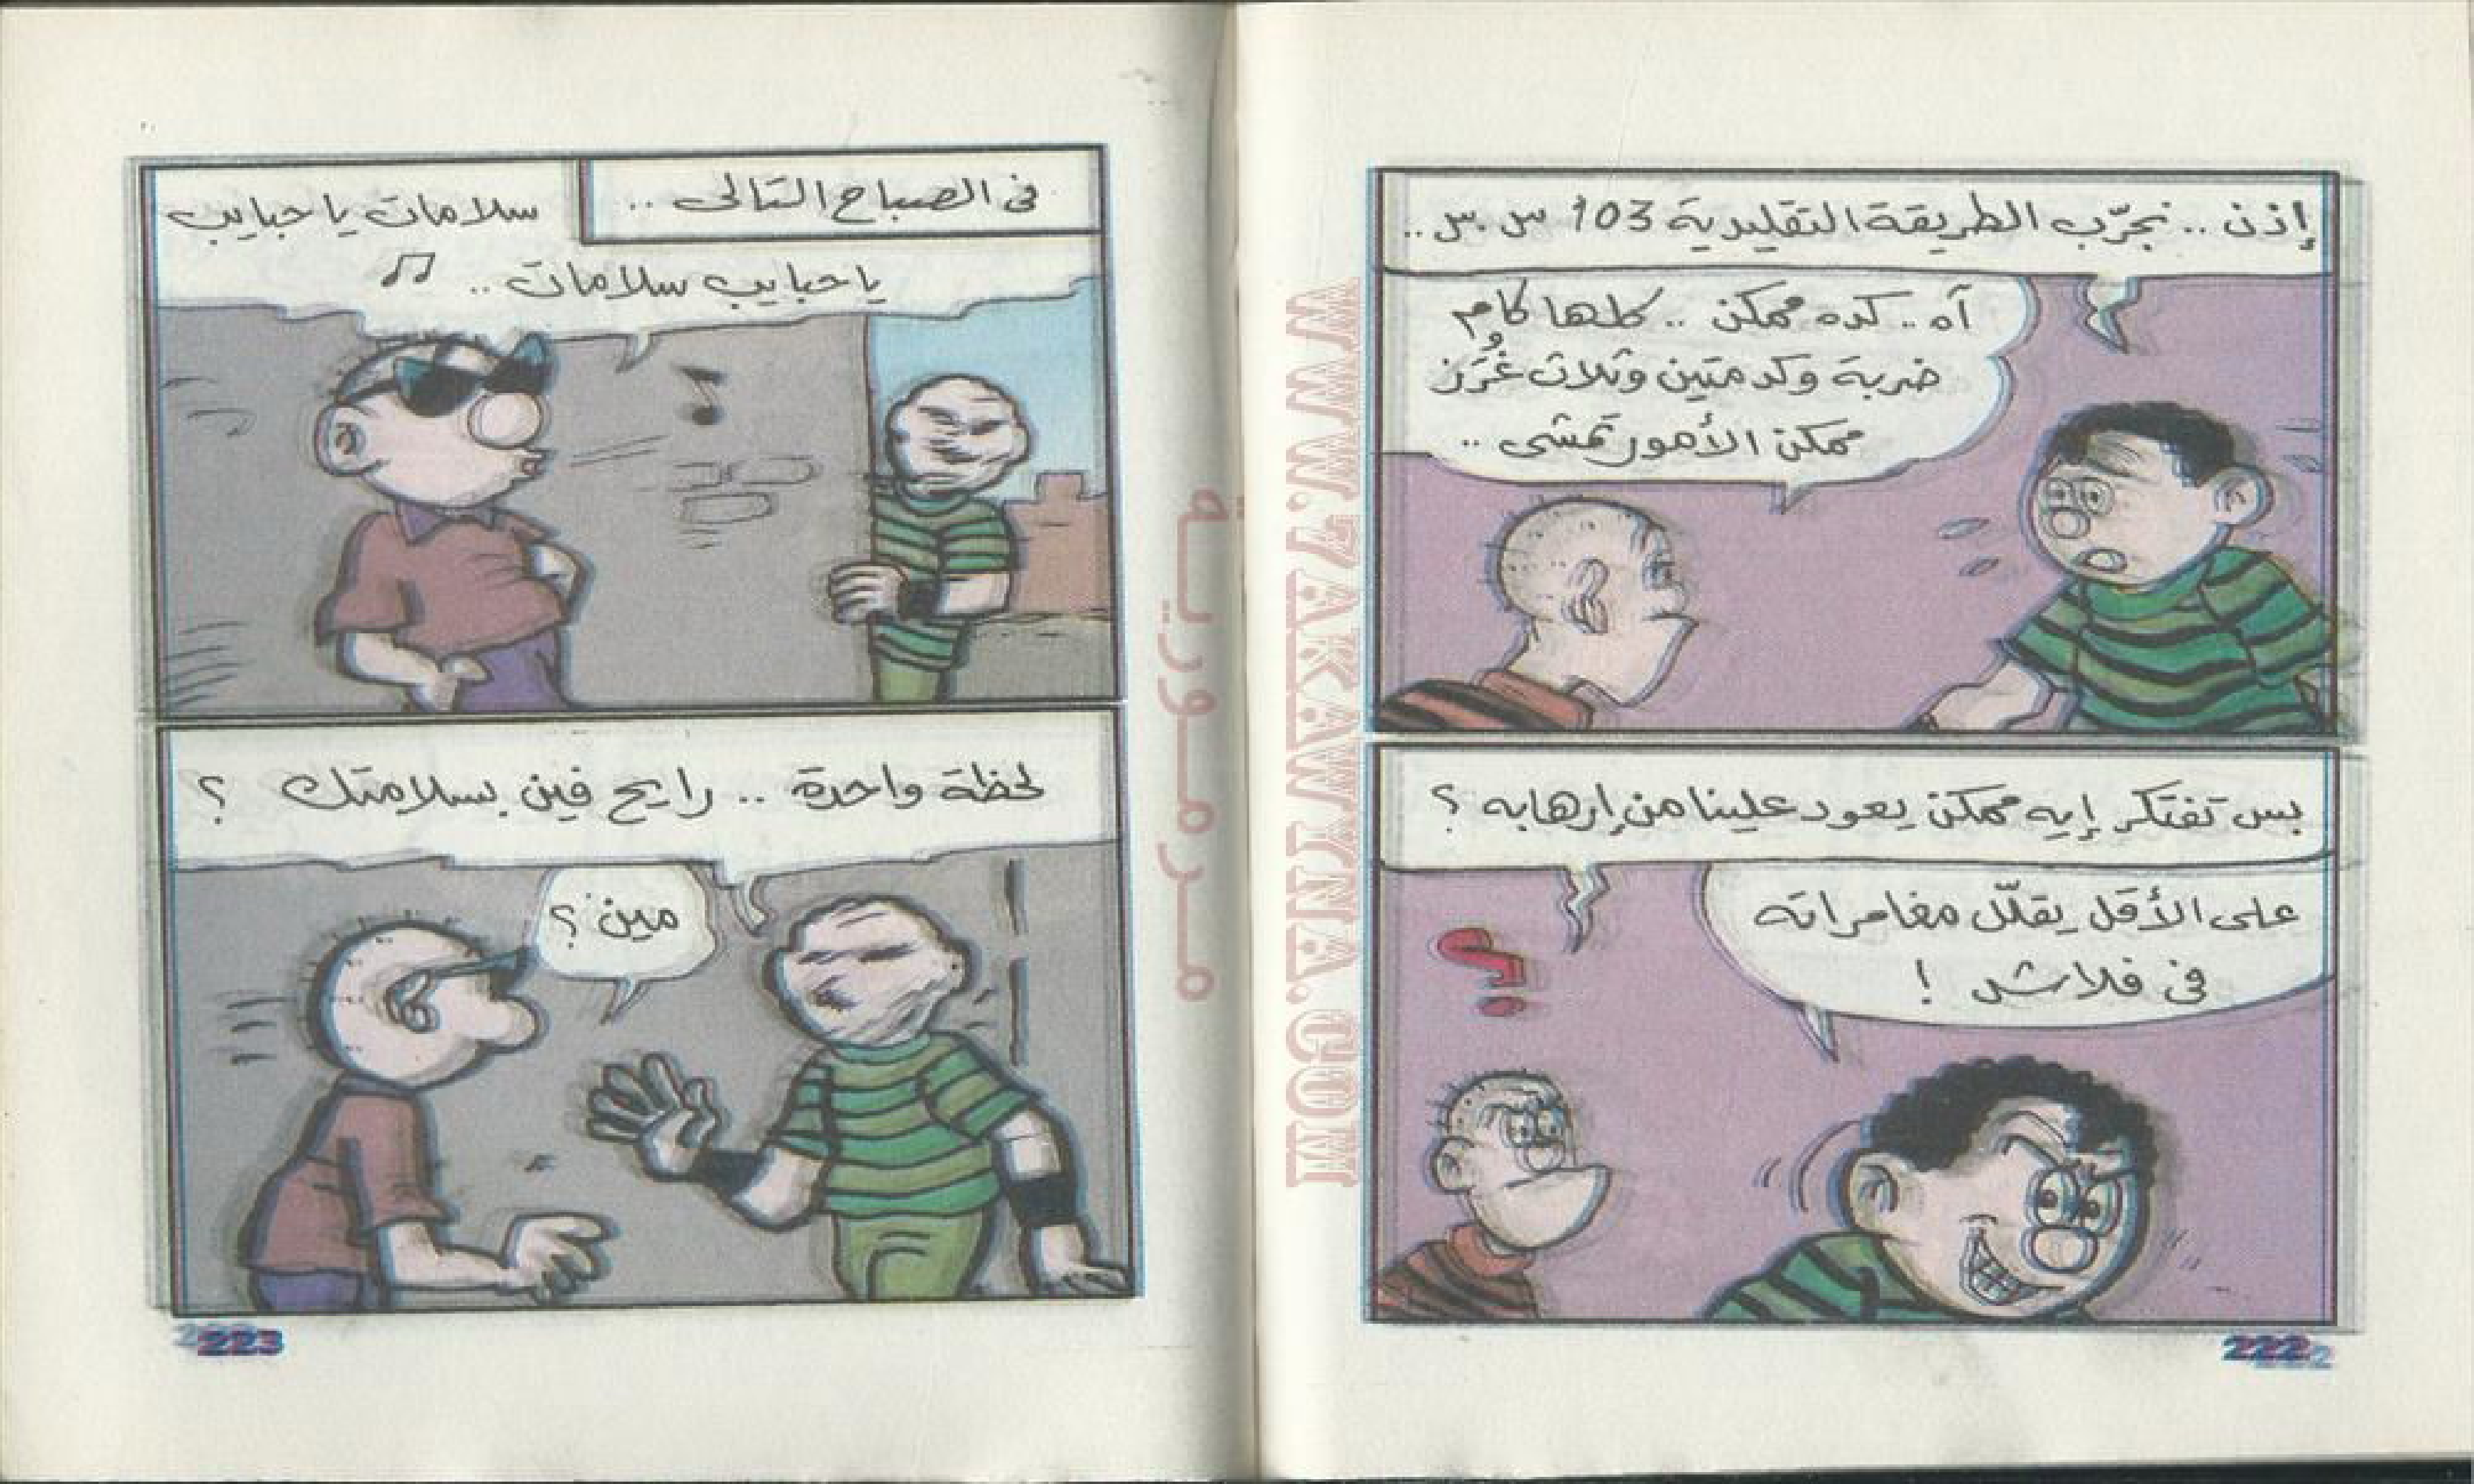 إذن .. نجرّب الطريقة التقليدية 103 س.س ..
آه .. كده ممكن .. كلها كام
ضربة وكدمتين وتلات غُرَز
ممكن الأمور تمشى ..
بس تفتكر إيه ممكن يعود علينا من إرهابه ؟
على الأقل يقلّل مغامراته
فى فلاش !
؟
222
فى الصباح التالى ..
سلامات يا حبايب
يا حبايب سلامات ..
لحظة واحدة .. رايح فين بسلامتك ؟
مين ؟
223
مـرمـوريـة
WWW.7AKAWYNA.COM